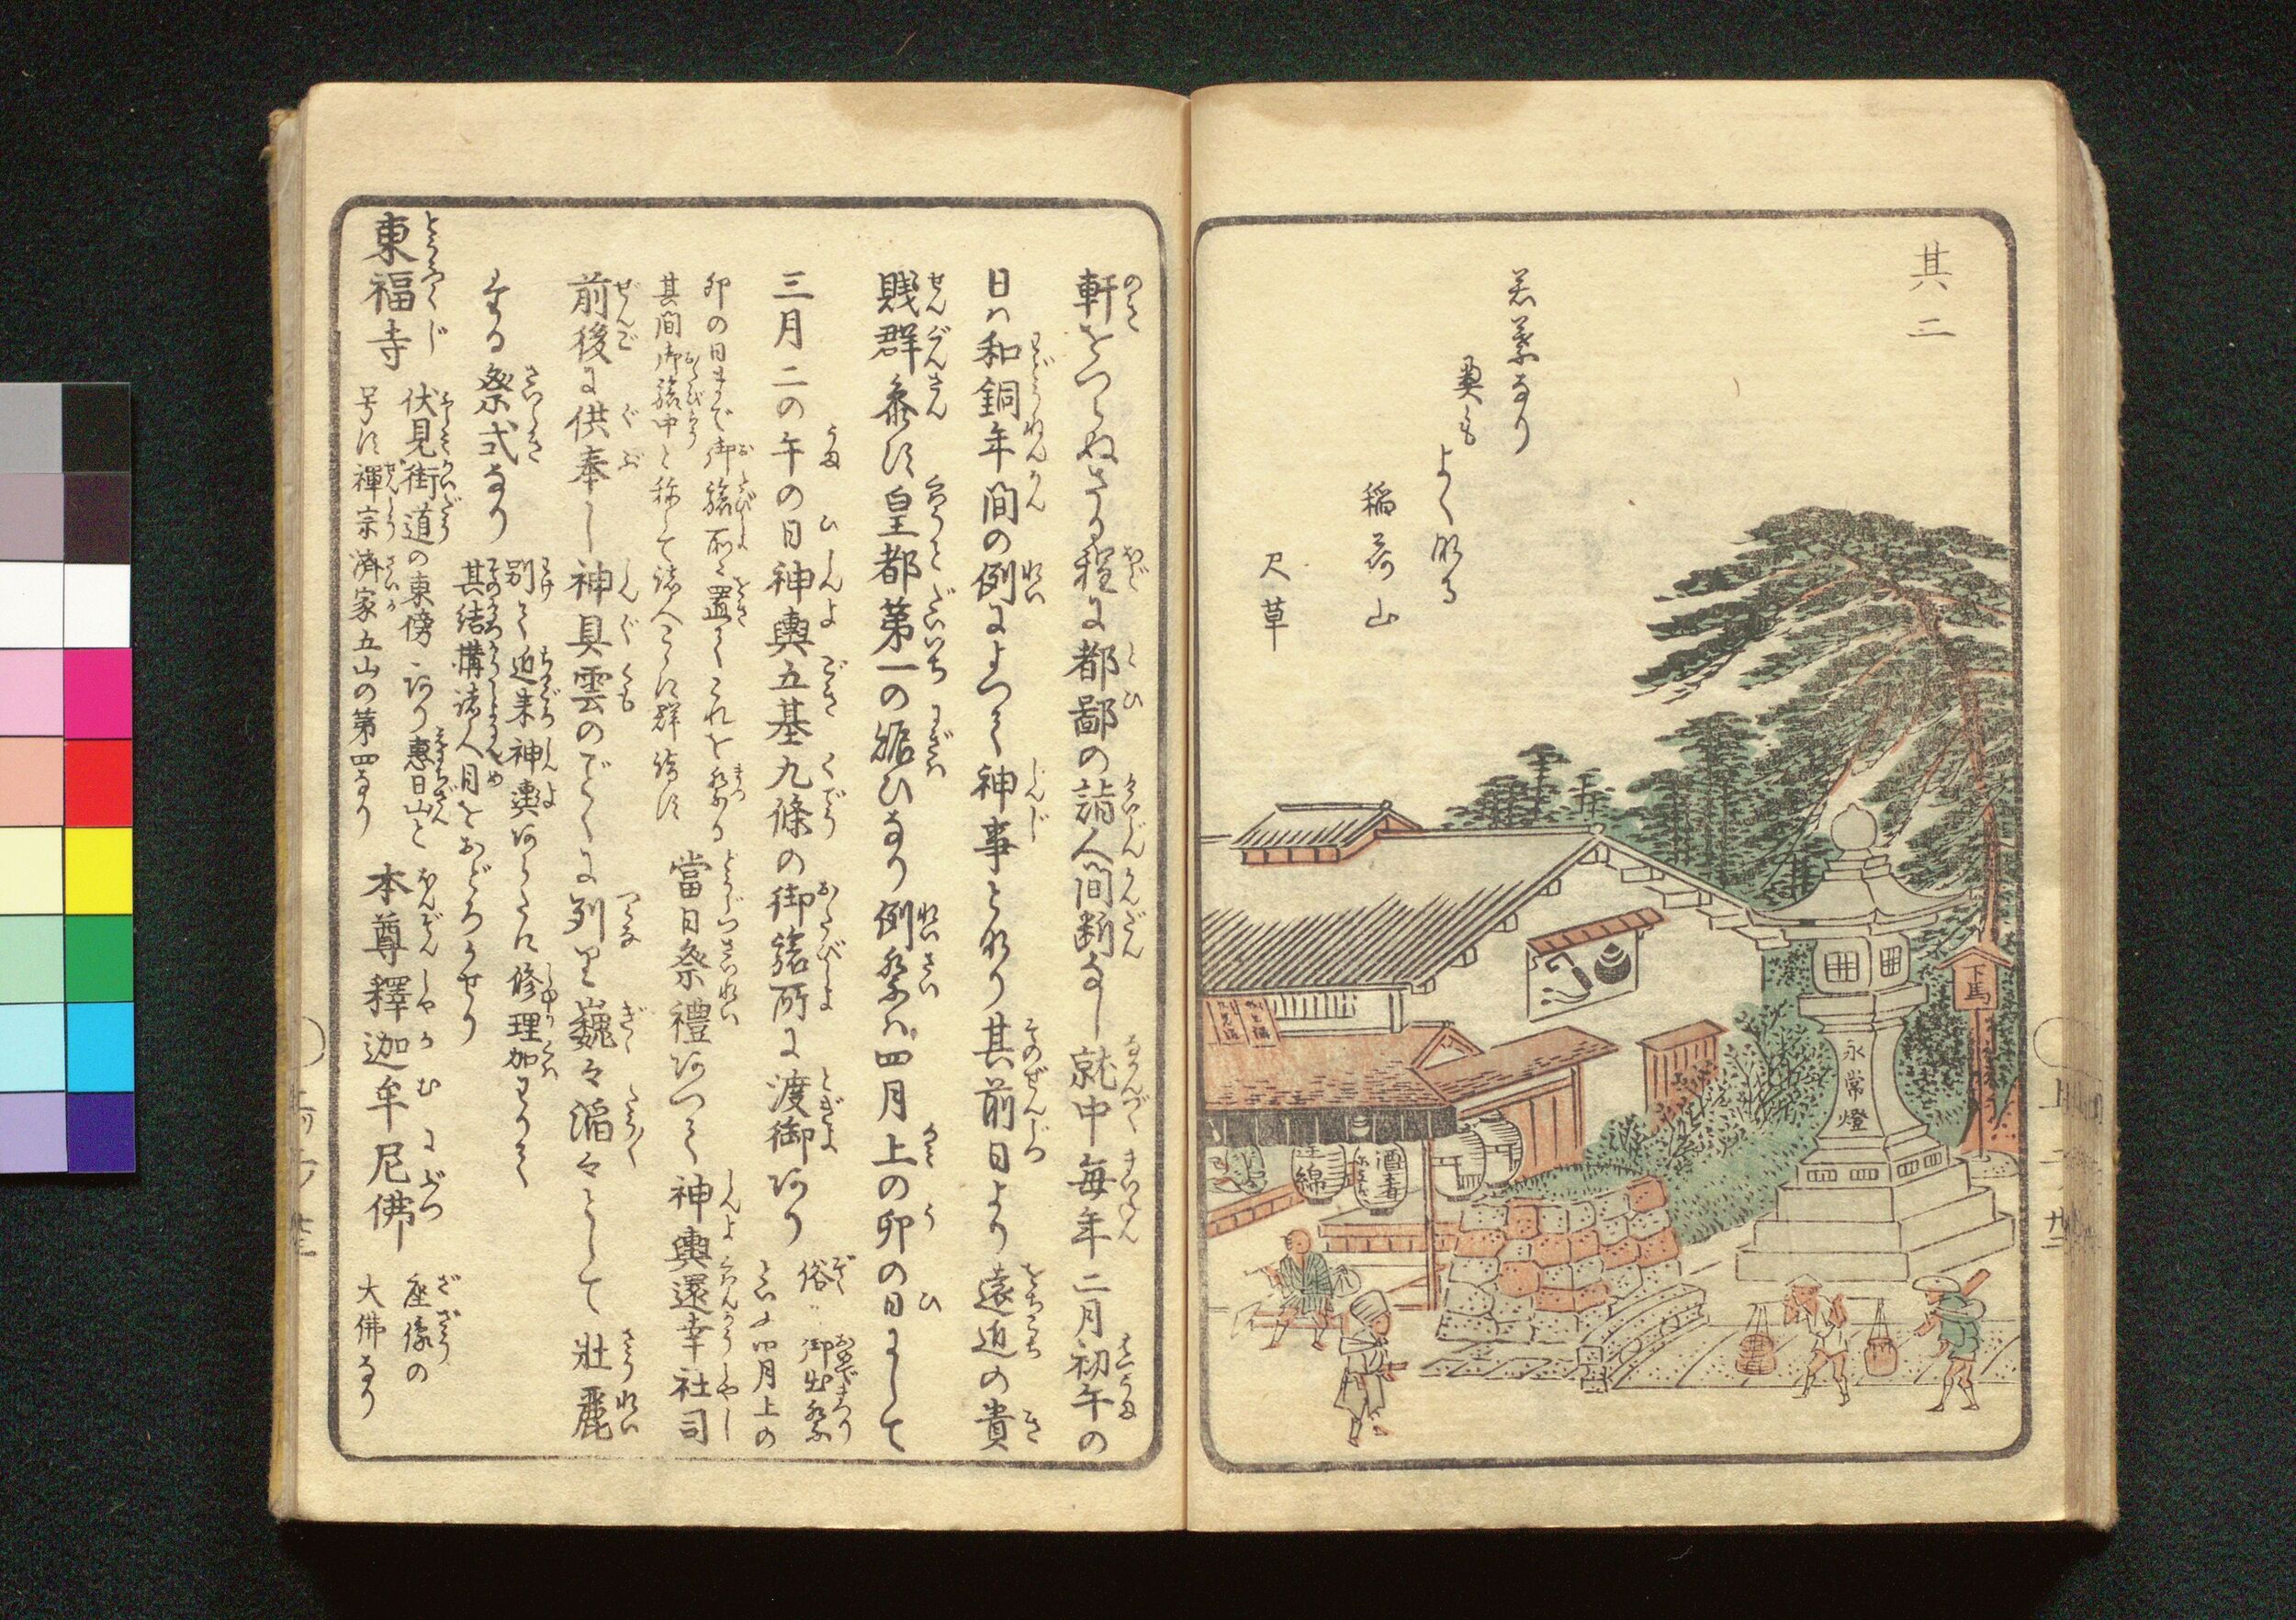 其二
若葉なり
奥も
よく听る
稲荷山
尺草
下馬
永常燈
酒肴
綿
軒をつらぬさる程に都鄙の詣人間断なし就中毎年二月初午の
日ハ和銅年間の例によつて神事となり其前日より遠近の貴
賤群参す皇都第一の賑ひなり例祭ハ四月上の卯の日にして
三月二の午の日神輿五基九條の御旅所に渡御あり
俗ニ御出祭
といふ四月上の
卯の日まで御旅所に置てこれを祭る
其間御旅中と称して諸人こゝに群詣す
當日祭禮あつて神輿還幸社司
前後に供奉し神具雲のごとくに列り巍々滔々として壯麗
なる祭式なり
別て近来神輿あらたに修理加わりて
其結構諸人目をおどろかせり
東福寺
伏見街道の東傍にあり惠日山と
号す禅宗済家五山の第四なり
本尊釋迦牟尼佛
座像の
大佛なり